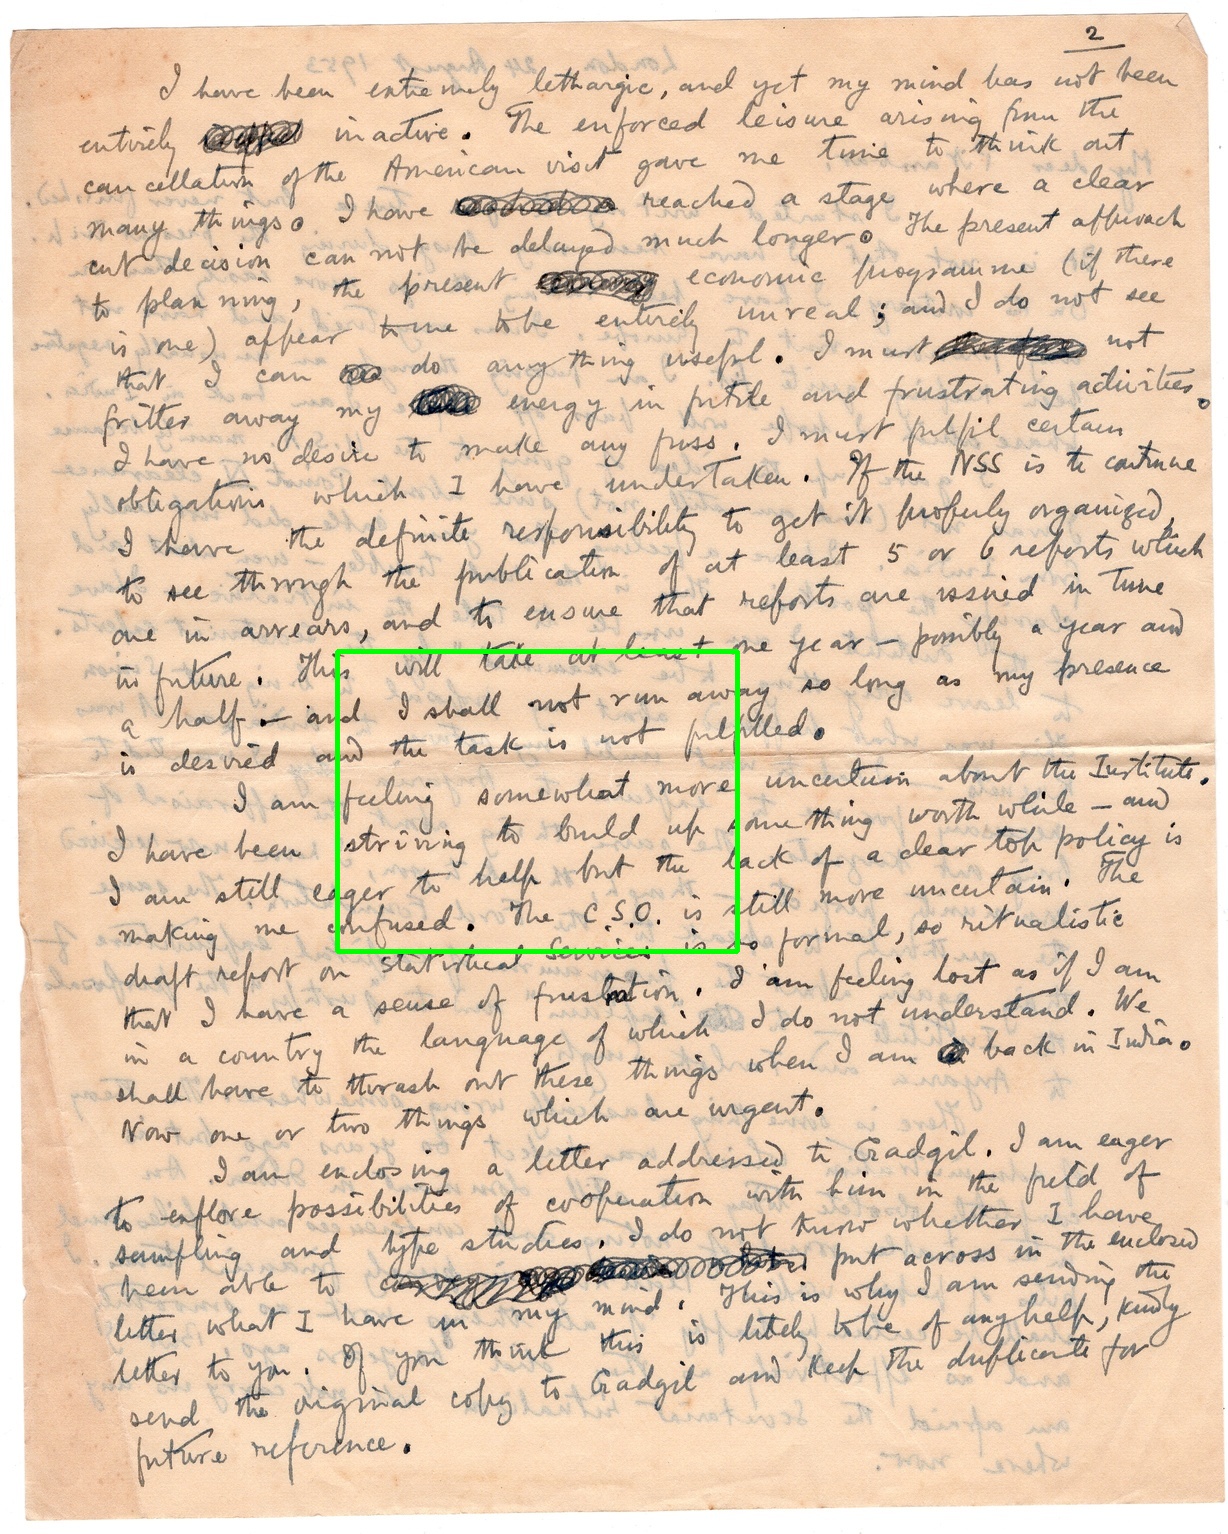 2
I have been extremely lethargic, and yet my mind has not been
entirely inactive. The enforced leisure arising from the
cancellation of the American visit gave me time to think out
many things. I have reached a stage where a clear
cut decision can not be delayed much longer. The present approach
to planning, the present economic programme (if there
is one) appear to me to be entirely unreal; and I do not see
that I can do anything useful. I must not
fritter away my energy in futile and frustrating activities.
I have no desire to make any fuss. I must fulfil certain
obligations which I have undertaken. If the NSS is to continue
I have the definite responsibility to get it properly organized,
to see through the publication of at least 5 or 6 reports which
are in arrears, and to ensure that reports are issued in time
in future. This will take at least one year — possibly a year and
a half — and I shall not run away so long as my presence
is desired and the task is not fulfilled.
I am feeling somewhat more uncertain about the Institute.
I have been striving to build up something worth while — and
I am still eager to help but the lack of a clear top policy is
making me confused. The C.S.O. is still more uncertain. The
draft report on statistical services is so formal, so ritualistic
that I have a sense of frustration. I am feeling lost as if I am
in a country the language of which I do not understand. We
shall have to thrash out these things when I am back in India.
Now one or two things which are urgent.
I am enclosing a letter addressed to Gadgil. I am eager
to explore possibilities of cooperation with him in the field of
sampling and type studies. I do not know whether I have
been able to put across in the enclosed
letter what I have in my mind. This is why I am sending the
letter to you. If you think this is likely to be of any help, kindly
send the original copy to Gadgil and keep the duplicate for
future reference.